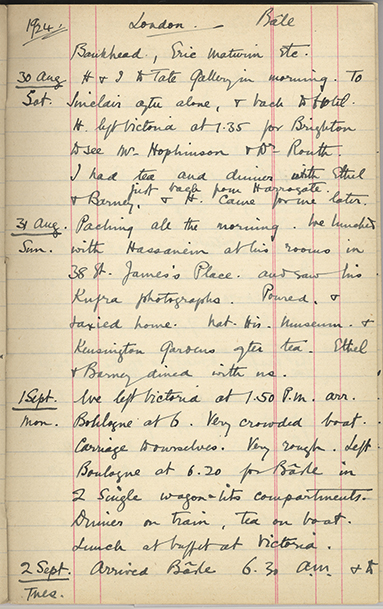 1924. London. Bâle
Bankhead, Eric Maturin etc.
30 Aug H & I to Tate Gallery in morning. To
Sat. Sinclair after alone, & back to Hotel.
H. left Victoria at 1.35 for Brighton
to see Mr Hopkinson & Dr Routh
I had tea and dinner with Ethel
just back from Harrogate.
& Barney. & H. came for me later.
31 Aug. Packing all the morning. We lunched
Sun. with Hassanein at his rooms in
38 St. James's Place. and saw his
Kufra photographs. Poured. &
taxied home. Nat. His. Museum. &
Kensington Gardens after tea. Ethel
& Barney dined with us.
1 Sept. We left Victoria at 1.50 P.M. arr.
Mon. Boulogne at 6. Very crowded boat.
Carriage to ourselves. Very rough. Left
Boulogne at 6.20 for Bâle in
2 Single wagon-lits compartments.
Dinner on train, tea on boat.
Lunch at buffet at Victoria.
2 Sept. Arrived Bâle 6.30 a.m. & to
Tues.